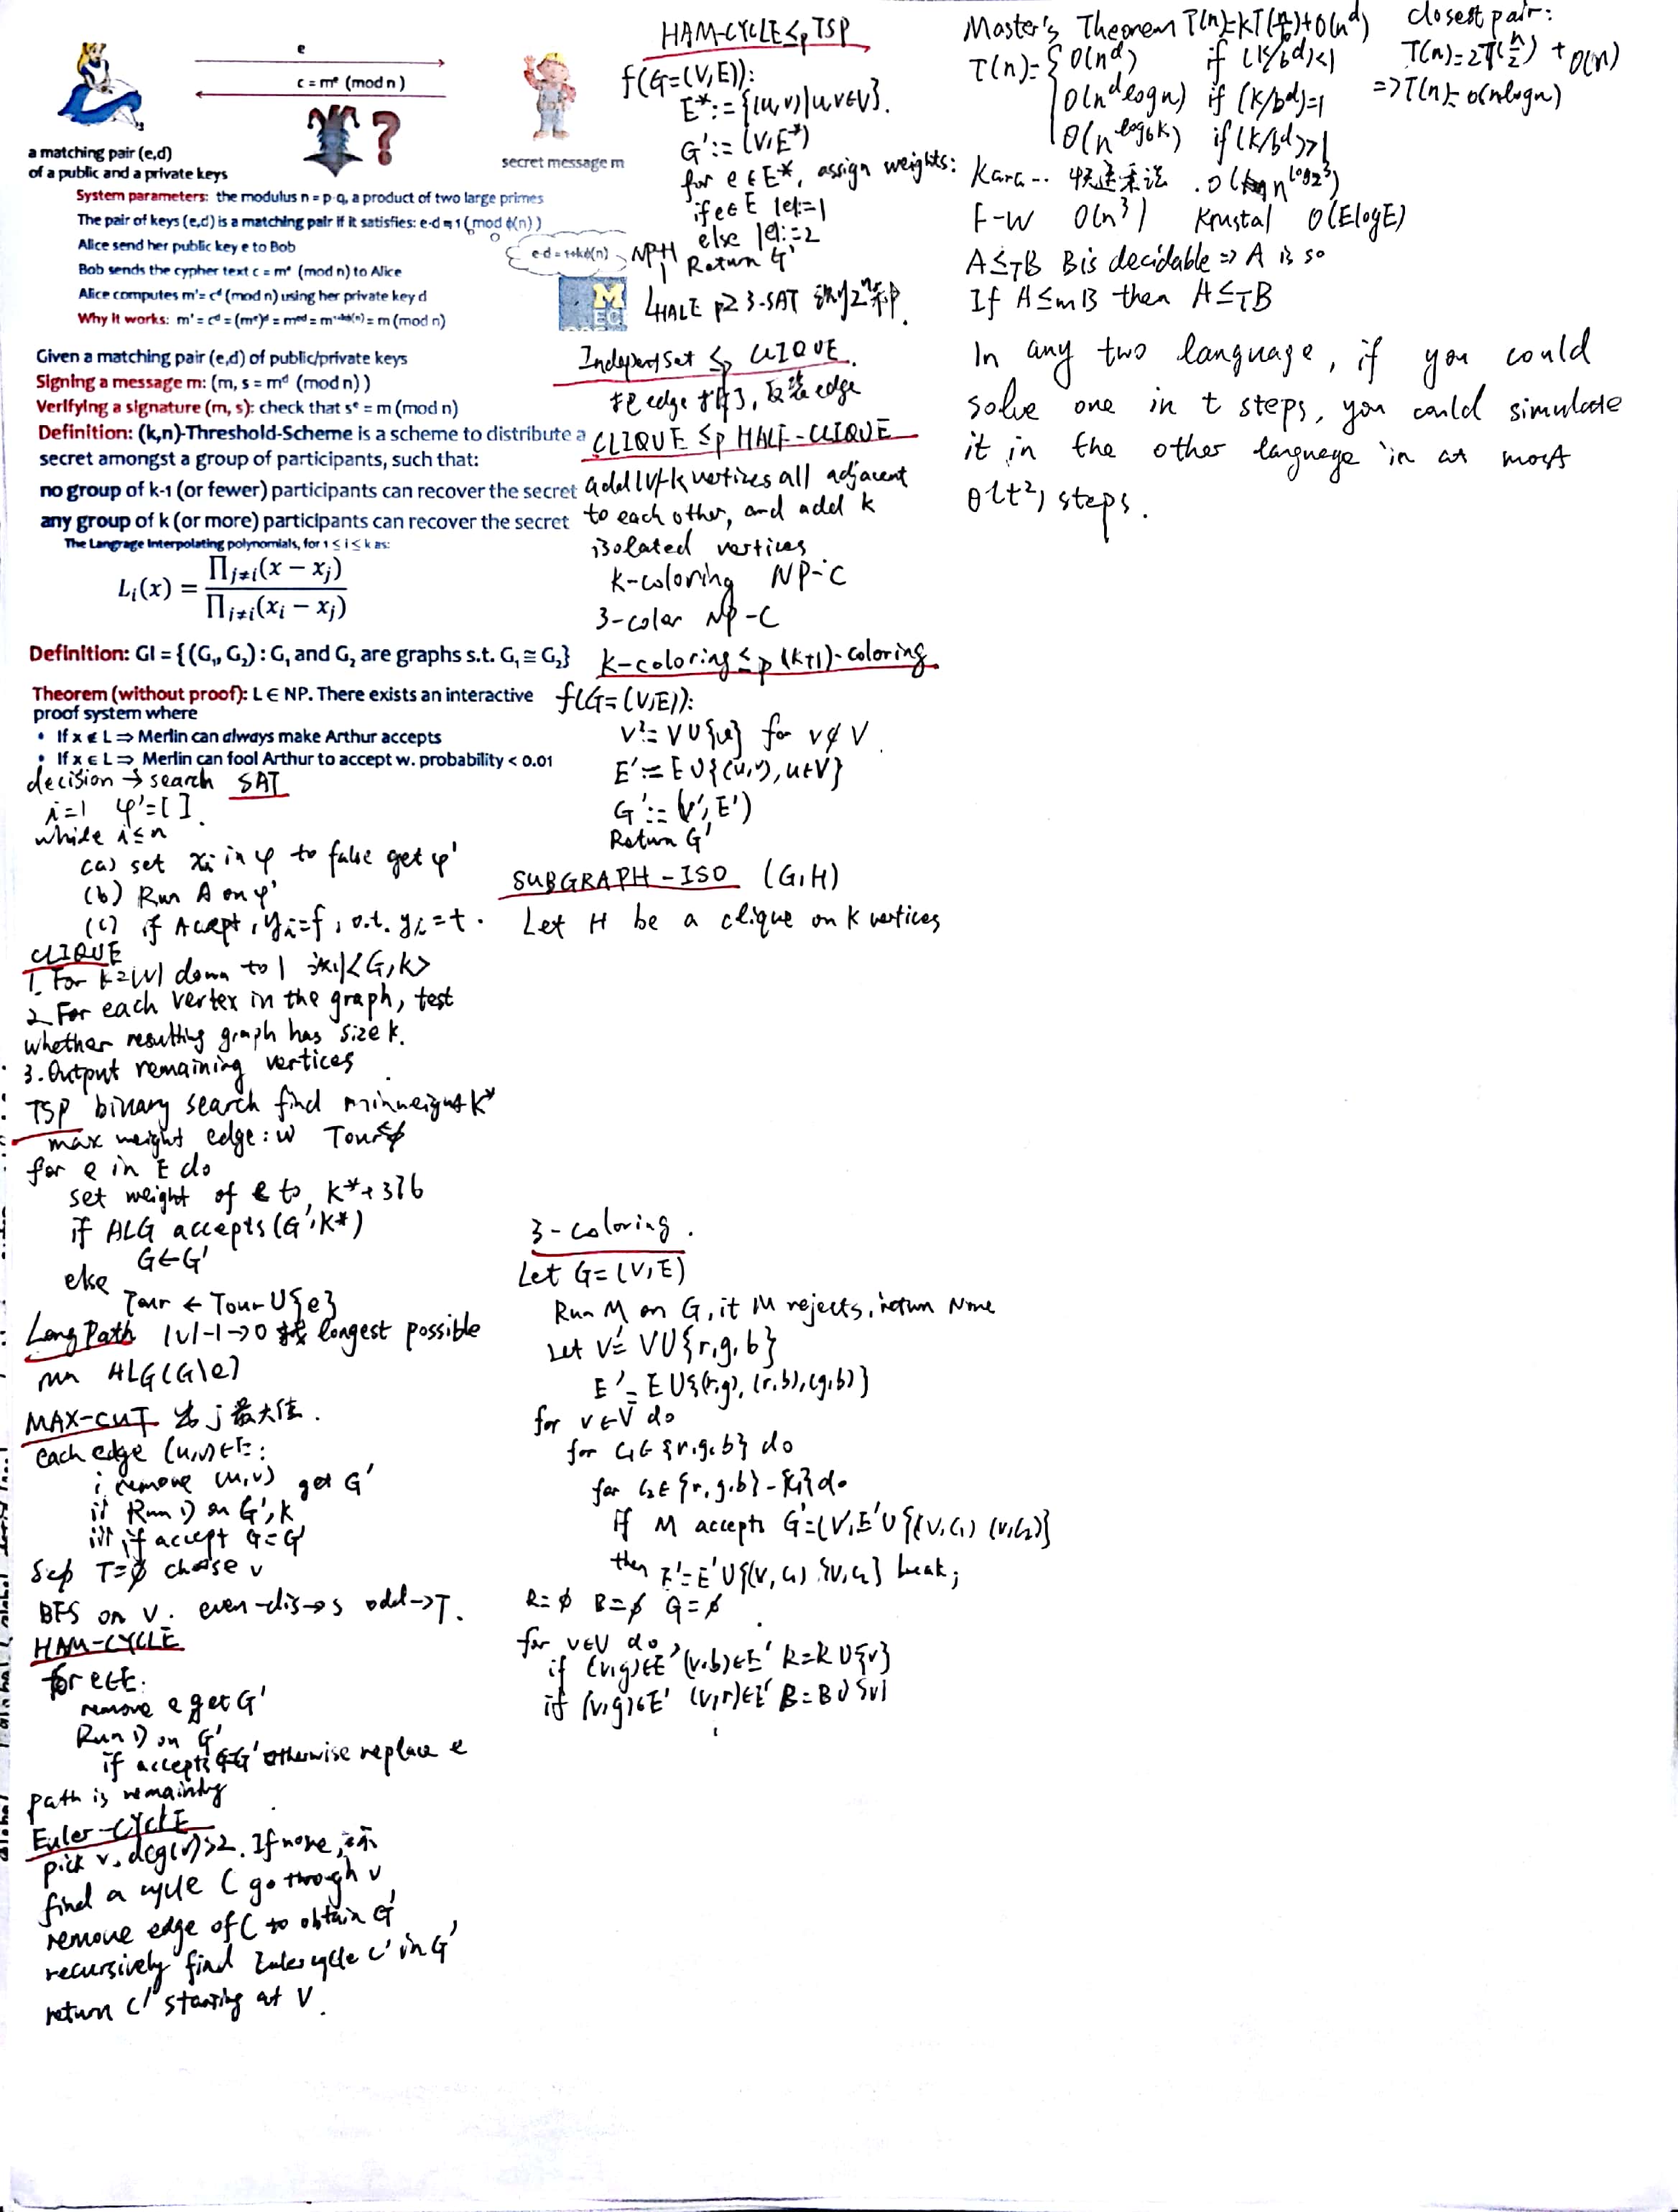 e
c = mᵉ (mod n)
a matching pair (e,d)
of a public and a private keys
secret message m
System parameters: the modulus n = p·q, a product of two large primes
The pair of keys (e,d) is a matching pair if it satisfies: e·d ≡ 1 (mod ϕ(n))
Alice send her public key e to Bob
e·d = 1+kϕ(n)
Bob sends the cypher text c = mᵉ (mod n) to Alice
Alice computes m'= cᵈ (mod n) using her private key d
Why it works: m' = cᵈ = (mᵉ)ᵈ = mᵉᵈ = m¹⁺ᵏᶲ⁽ⁿ⁾ = m (mod n)
M
EC
Given a matching pair (e,d) of public/private keys
Signing a message m: (m, s = mᵈ (mod n))
Verifying a signature (m, s): check that sᵉ = m (mod n)
Definition: (k,n)-Threshold-Scheme is a scheme to distribute a
secret amongst a group of participants, such that:
no group of k-1 (or fewer) participants can recover the secret
any group of k (or more) participants can recover the secret
The Langrage Interpolating polynomials, for 1 ≤ i ≤ k as:
Lᵢ(x) = ∏j≠i(x − xj) / ∏j≠i(xi − xj)
Definition: GI = {(G₁, G₂) : G₁ and G₂ are graphs s.t. G₁ ≅ G₂}
Theorem (without proof): L ∈ NP. There exists an interactive
proof system where
• If x ∉ L ⇒ Merlin can always make Arthur accepts
• If x ∈ L ⇒ Merlin can fool Arthur to accept w. probability < 0.01
decision → search SAT
i=1 φ'=[ ].
while i≤n
(a) set xi in φ to false get φ'
(b) Run A on φ'
(c) if Accept, yi=f, o.t. yi=t.
CLIQUE
1. For k=|V| down to 1 <G,k>
2. For each vertex in the graph, test
whether resulting graph has size k.
3. Output remaining vertices
TSP binary search find minweight k*
max weight edge: w Tour=∅
for e in E do
set weight of e to k*+376
if ALG accepts (G',k*)
G←G'
else
Tour ← Tour U{e}
Long Path |V|-1→0 找 longest possible
run ALG(G\e)
MAX-CUT 最大值.
each edge (u,v)∈E:
i remove (u,v) get G'
ii Run D on G',k
iii if accept G=G'
T=∅ choose v
BFS on v. even-dis→s odd→T.
HAM-CYCLE
for e∈E:
remove e get G'
Run D on G'
if accepts G=G' otherwise replace e
path is remaining
Euler-CYCLE
pick v, deg(v)>2. If none,
find a cycle C go through v
remove edge of C to obtain G'
recursively find Euler cycle C' in G'
return C' starting at V.
HAM-CYCLE ≤p TSP
f(G=(V,E)):
E*:={(u,v)|u,v∈V}.
G':=(V,E*)
for e∈E*, assign weights:
if e∈E |e|:=1
else |e|:=2
Return G'
NPH
≤p 3-SAT
IndepentSet ≤p CLIQUE
把edge, 反装edge
CLIQUE ≤p HALF-CLIQUE
add |V|-k vertizes all adjacent
to each other, and add k
isolated vertices
k-coloring NP-C
3-color NP-C
k-coloring ≤p (k+1)-coloring
f(G=(V,E)):
V':= V U{v} for v∉V
E':= E U{(u,v), u∈V}
G':=(V',E')
Return G'
SUBGRAPH-ISO (G,H)
Let H be a clique on k vertices
3-coloring.
Let G=(V,E)
Run M on G, if M rejects, return None
Let V'= V U{r,g,b}
E'= E U{(r,g),(r,b),(g,b)}
for v∈V do
for C1∈{r,g,b} do
for C2∈{r,g,b}-{C1} do
If M accepts G'=(V',E'U{(v,C1) (v,C2)}
then E'=E'U{(v,C1),(v,C2} break;
R=∅ B=∅ G=∅
for v∈V do
if (v,g)∈E' (v,b)∈E' R=R U{v}
if (v,g)∈E' (v,r)∈E' B=B U{v}
Master's Theorem T(n)=kT(n/b)+O(n^d)
T(n)={ O(n^d) if (k/b^d)<1
O(n^d log n) if (k/b^d)=1
O(n^(log_b k)) if (k/b^d)>1
closest pair:
T(n)=2T(n/2) + O(n)
=>T(n)=O(nlogn)
Kara-- 快速乘法. O(n^(log₂3))
F-W O(n³) Krustal O(ElogE)
A≤TB B is decidable => A is so
If A≤mB then A≤TB
In any two language, if you could
solve one in t steps, you could simulate
it in the other language in at most
θ(t²) steps.